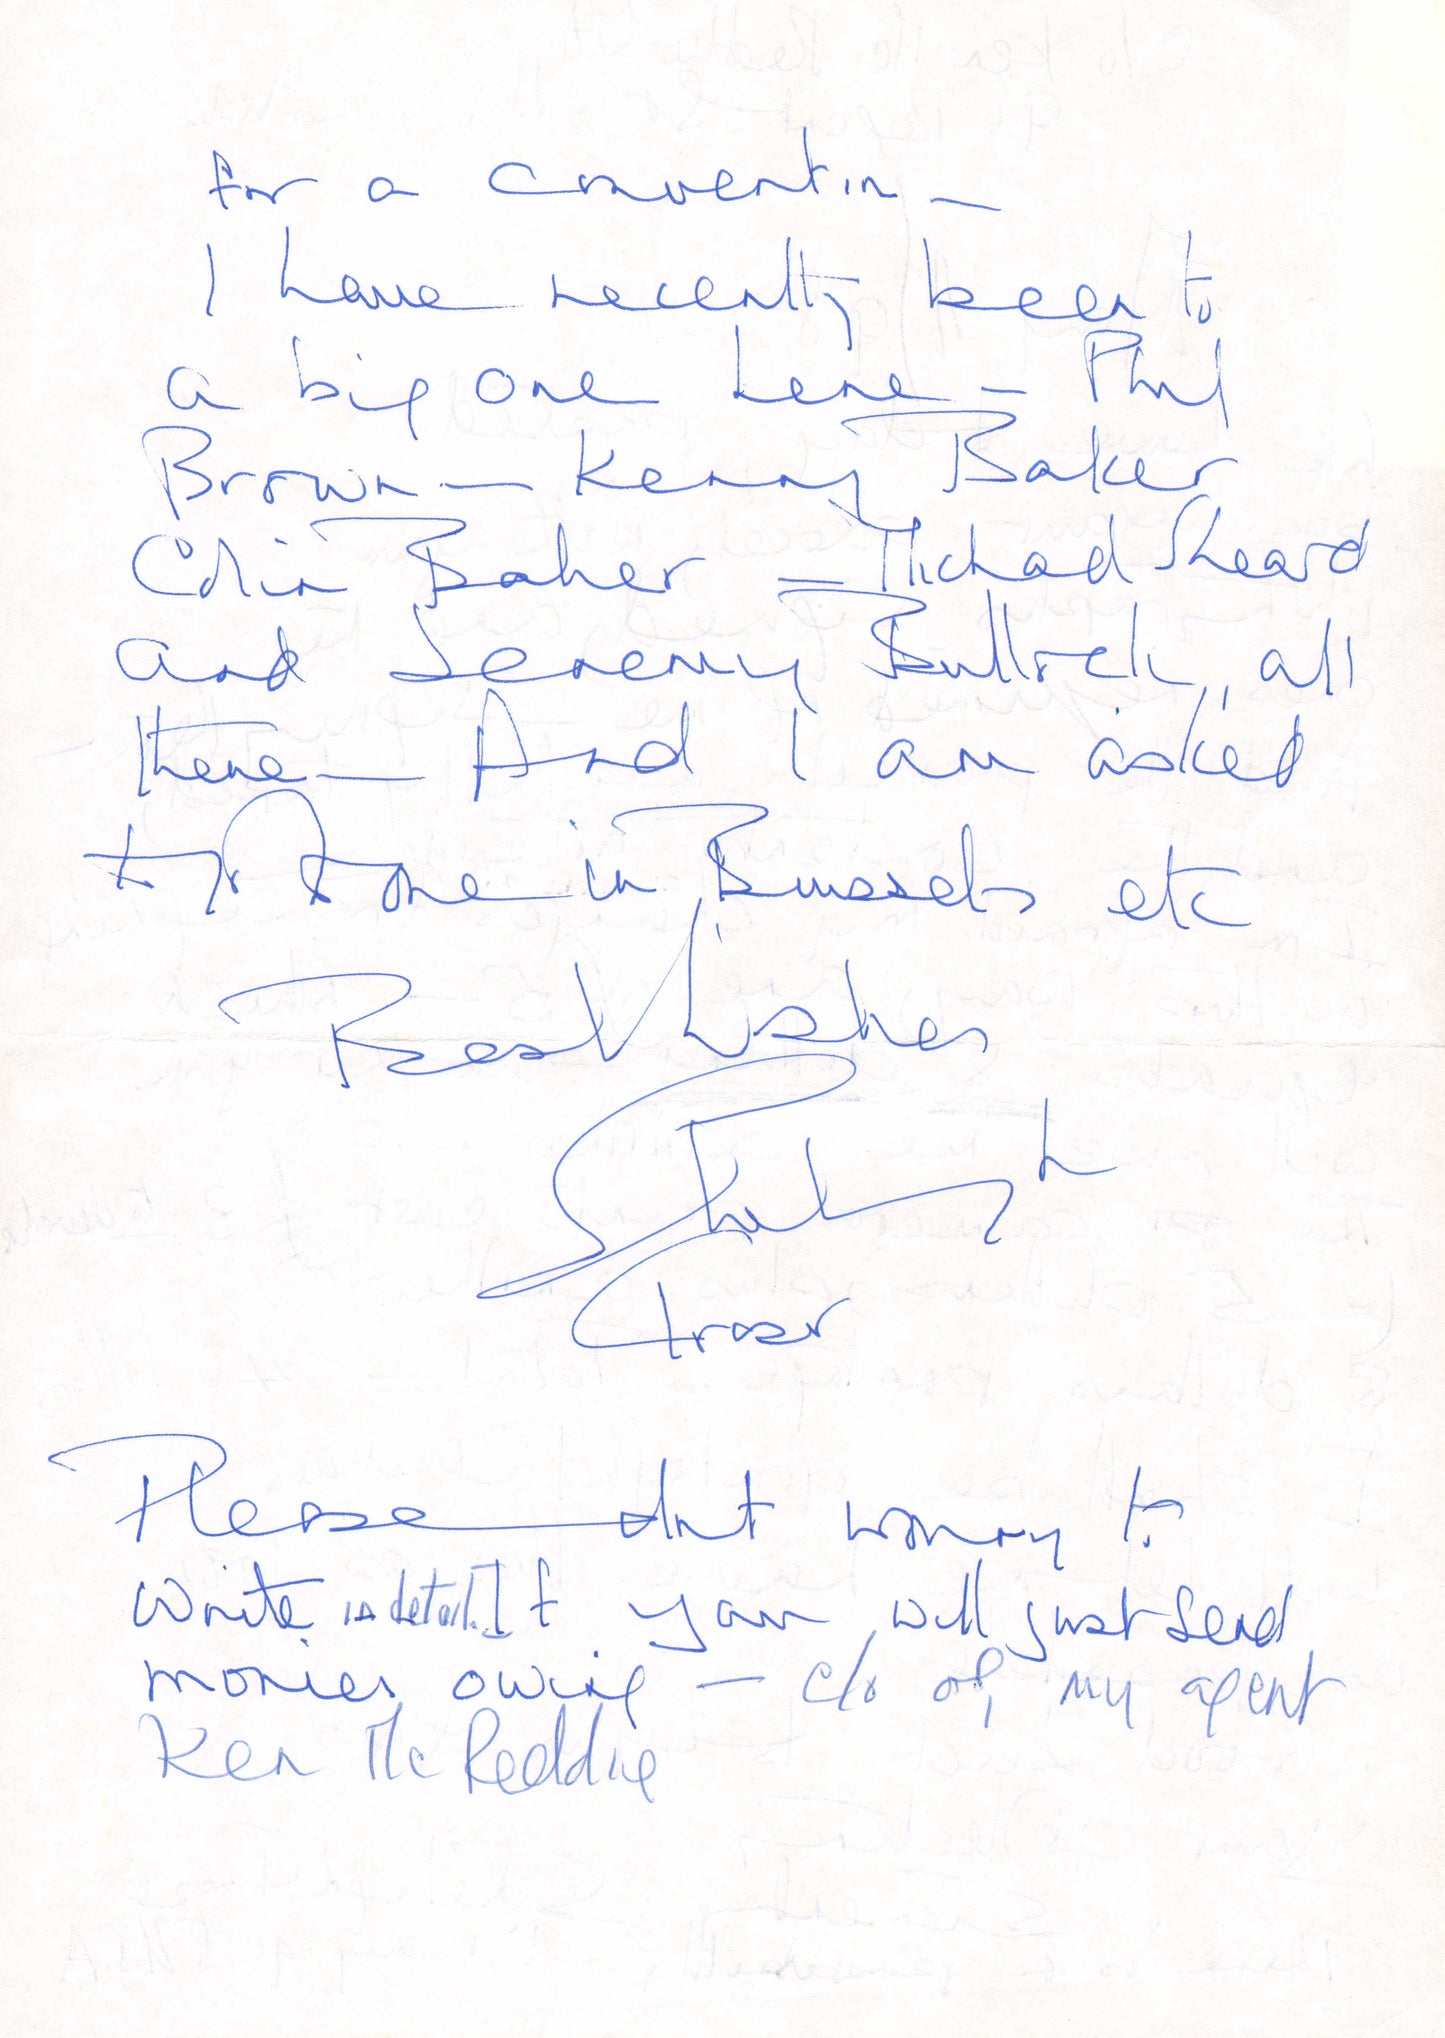 for a convention –
I have recently been to
a big one here – Phil
Brown – Kenny Baker
Colin Baker – Michael Sheard
and Jeremy Bulloch, all
there – And I am asked
to one in Brussels etc
Best Wishes
Shelagh
Fraser
Please don't worry to
write in detail. If you will just send
monies owing – c/o of, my agent
Ken McReddie